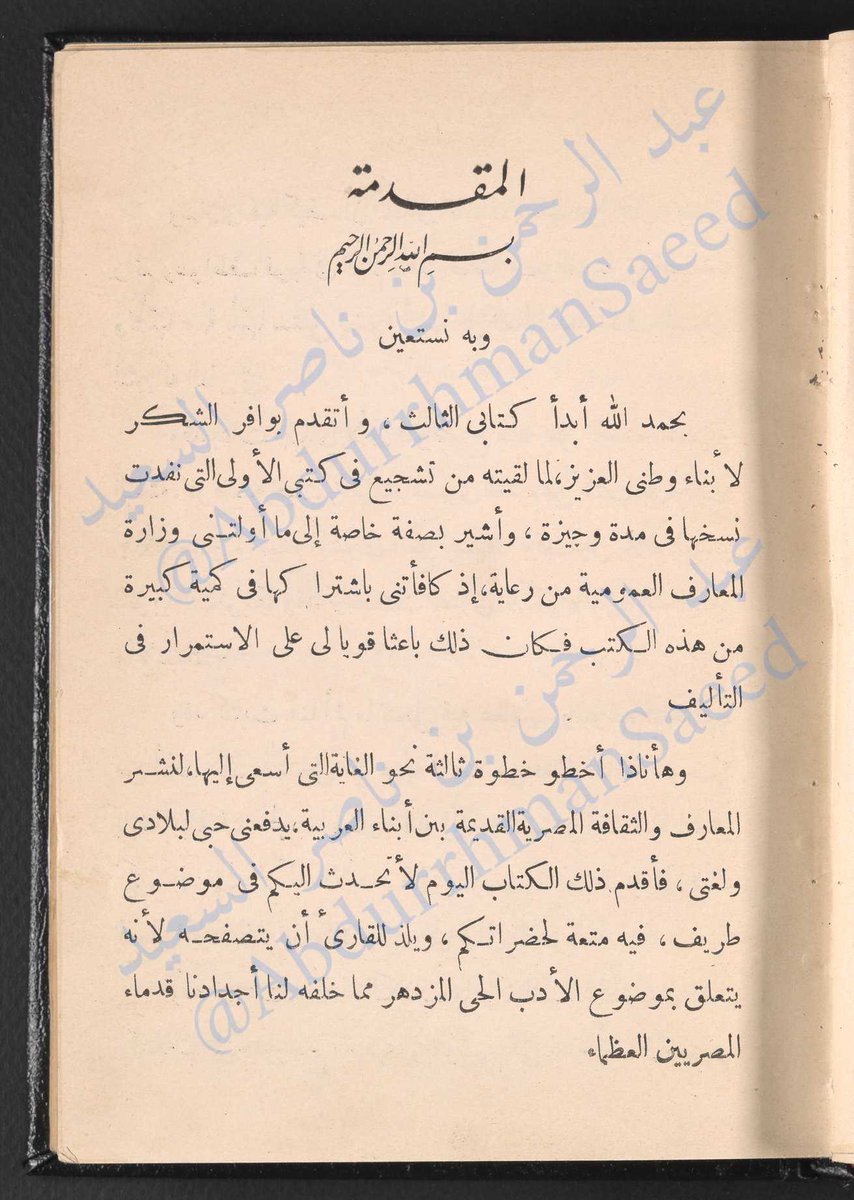 المقدمة
بسم الله الرحمن الرحيم
وبه نستعين
بحمد الله أبدأ كتابى الثالث ، و أتقدم بوافر الشكر
لأبناء وطنى العزيز،لما لقيته من تشجيع فى كتبى الأولى التى نفدت
نسخها فى مدة وجيزة ، وأشير بصفة خاصة إلى ما أولتنى وزارة
المعارف العمومية من رعاية،إذ كافأتنى باشترا كها فى كمية كبيرة
من هذه الكتب فكان ذلك باعثا قويا لى على الاستمرار فى
التأليف
وهأناذا أخطو خطوة ثالثة نحو الغاية التى أسعى إليها،لنشر
المعارف والثقافة المصرية القديمة بين أبناء العربية،يدفعنى حبى لبلادى
ولغتى ، فأقدم ذلك الكتاب اليوم لأتحدث اليكم فى موضوع
طريف ، فيه متعة لحضراتكم ، ويلذ للقارئ أن يتصفحه لأنه
يتعلق بموضوع الأدب الحى المزدهر مما خلفه لنا أجدادنا قدماء
المصريين العظماء
عبد الرحمن بن ناصر السعيد
@AbdurrhmanSaeed
عبد الرحمن بن ناصر السعيد
@AbdurrhmanSaeed